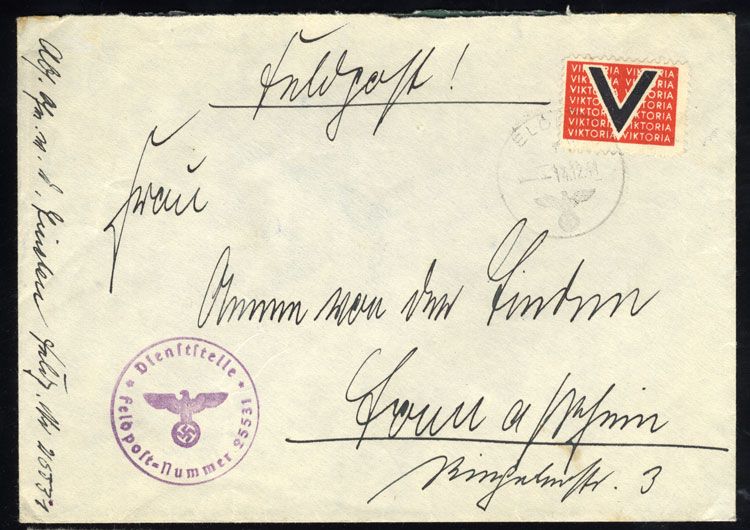 Feldpost!
VIKTORIA VIKTORIA
VIKTORIA VIKTORIA
VIKTORIA VIKTORIA
VIKTORIA VIKTORIA
VIKTORIA VIKTORIA
VIKTORIA VIKTORIA
V
14.12.41
Frau
Aenne von der Linden
Bonn a/Rhein
3
* Dienststelle *
Feldpost=Nummer 25531
Abs. v. d. Linden Feldp. Nr 25531